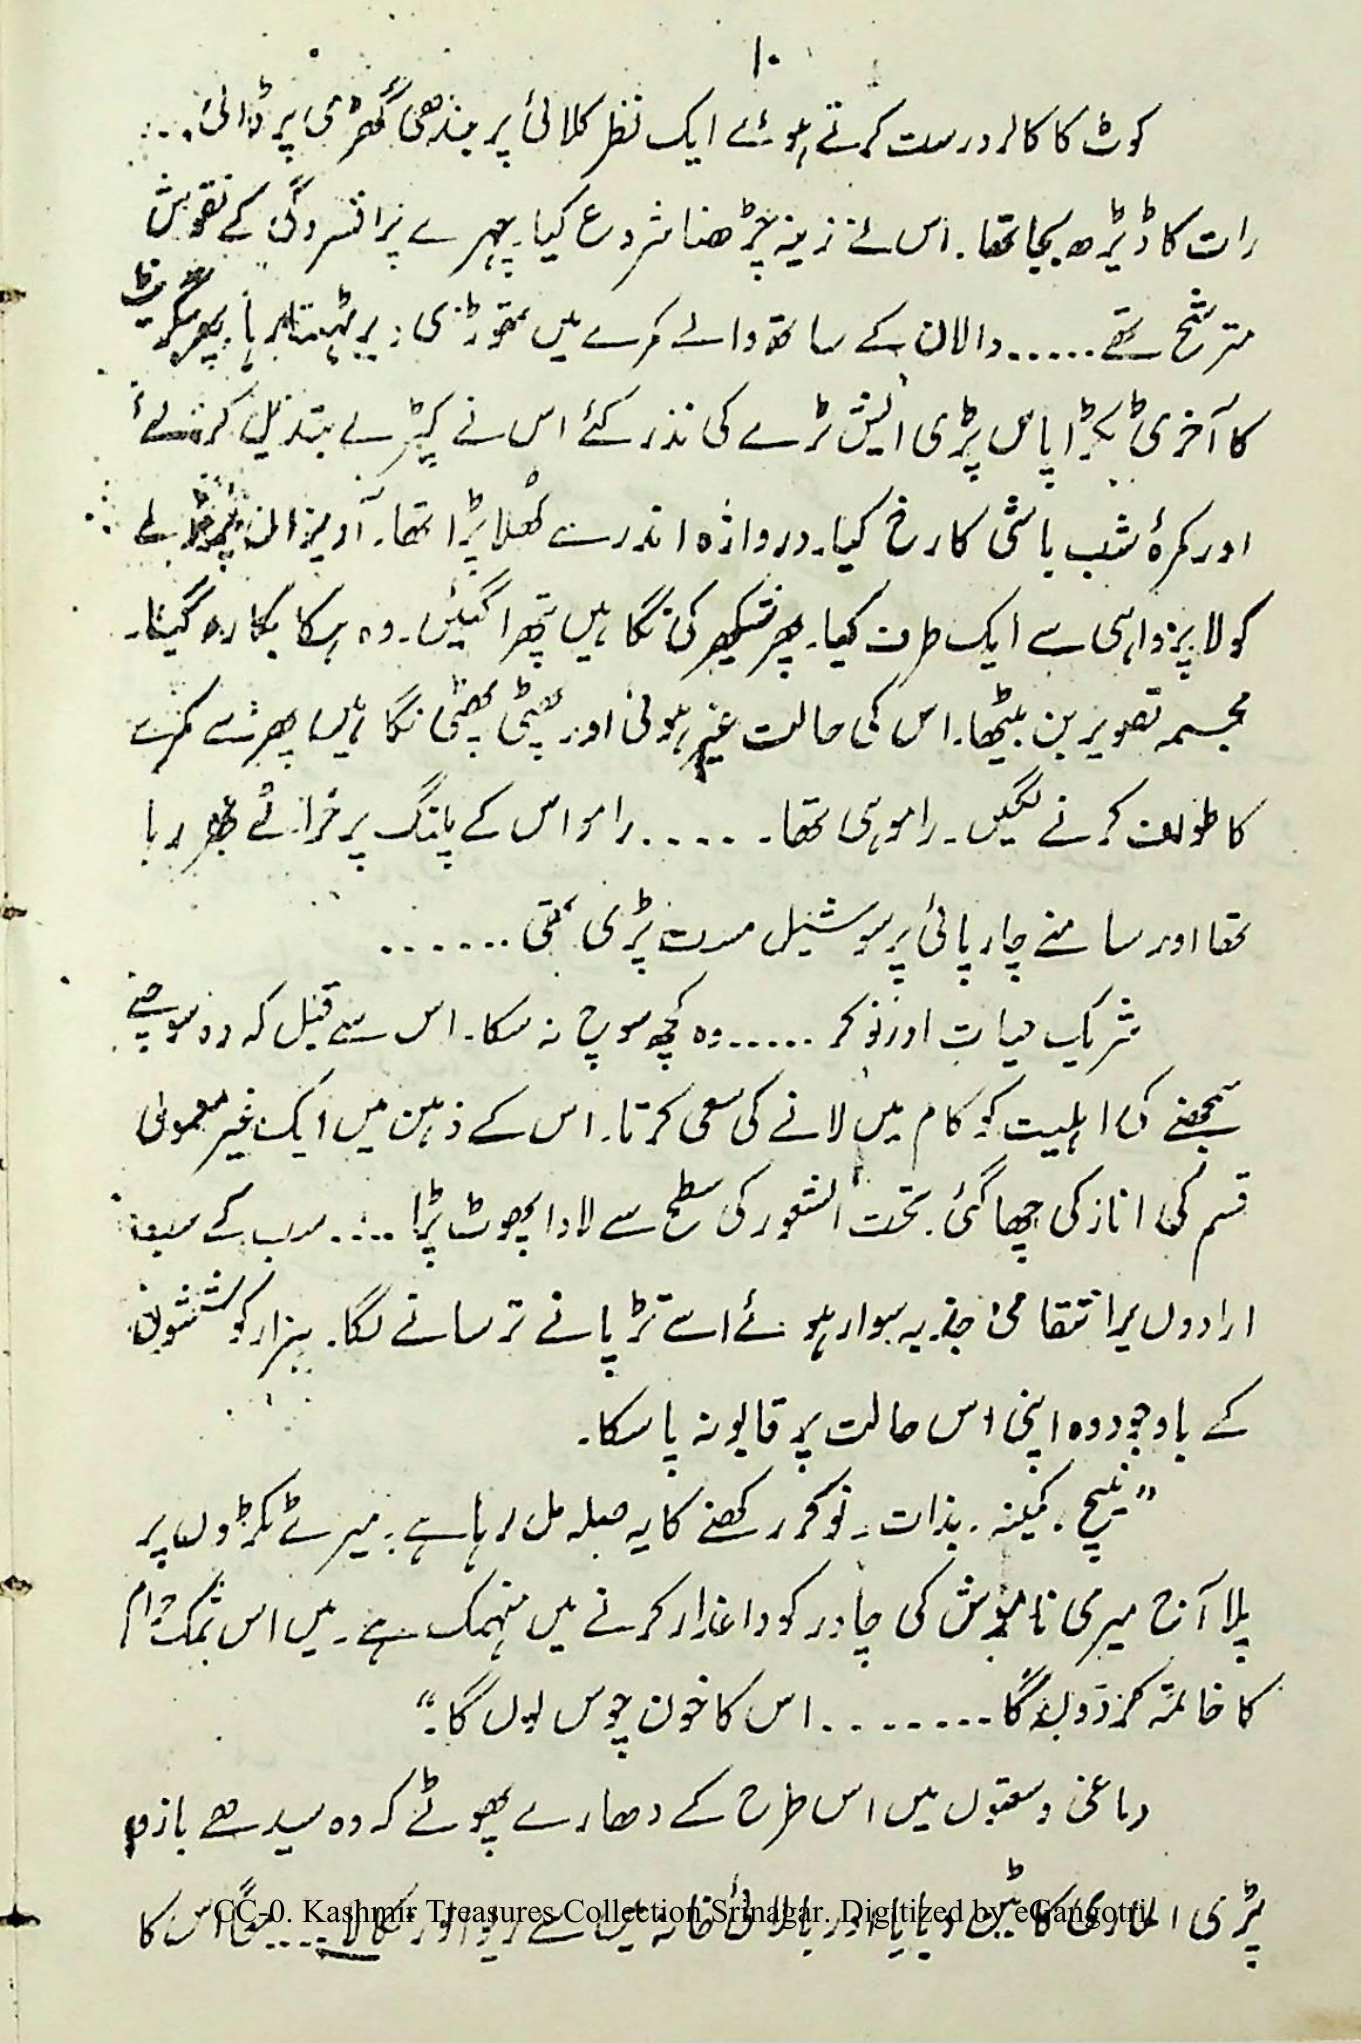 ۱۰
کوٹ کا کالر درست کرتے ہوئے ایک نظر کلائی پر بندھی گھڑی پر ڈالی...
رات کا ڈیڑھ بجا تھا۔ اس نے زینہ چڑھنا شروع کیا۔ چہرے پر افسردگی کے نقوش
مترشح تھے ...... دالان کے ساتھ والے کمرے میں تھوڑی دیر ٹہلتا رہا۔ پھر سگریٹ
کا آخری ٹکڑا پاس پڑی ایش ٹرے کی نذر کئے اس نے کپڑے تبدیل کر لئے
اور کمرۂ شب باشی کا رخ کیا۔ دروازہ اندر سے کھلا پڑا تھا۔ آویزاں پردے
کو لاپرواہی سے ایک طرف کیا۔ پھر شیکھر کی نگاہیں پتھرا گئیں۔ وہ ہکا بکا رہ گیا۔
مجسمہ تصویر بن بیٹھا۔ اس کی حالت غیر ہوئی اور پھٹی پھٹی نگاہیں پھر سے کمرے
کا طواف کرنے لگیں۔ رامو ہی تھا۔ ..... رامو اس کے پلنگ پر خراٹے بھر رہا
تھا اور سامنے چارپائی پر سوشیل مست پڑی تھی ......
شریک حیات اور نوکر ...... وہ کچھ سوچ نہ سکا۔ اس سے قبل کہ وہ سوچنے
سمجھنے کی اہلیت کو کام میں لانے کی سعی کرتا۔ اس کے ذہن میں ایک غیر معمولی
قسم کی انارکی چھا گئی۔ تحت الشعور کی سطح سے لاوا پھوٹ پڑا .... سب کے سب
ارادوں پر انتقامی جذبہ سوار ہوئے اسے تڑپانے ترسانے لگا۔ ہزار کوششوں
کے باوجود وہ اپنی اس حالت پر قابو نہ پا سکا۔
”نیچ۔ کمینہ۔ بدذات۔ نوکر رکھنے کا یہ صلہ مل رہا ہے۔ میرے ٹکڑوں پر
پلا آج میری ناموس کی چادر کو داغدار کرنے میں منہمک ہے۔ میں اس نمک حرام
کا خاتمہ کر دوں گا ........ اس کا خون چوس لوں گا۔“
دماغی وسعتوں میں اس طرح کے دھارے پھوٹے کہ وہ سیدھے بازو
پڑی الماری کا بٹن دبایا اور بالائی خانہ میں سے ریوالور نکالا ..... اس کا
CC-0. Kashmir Treasures Collection Srinagar. Digitized by eGangotri